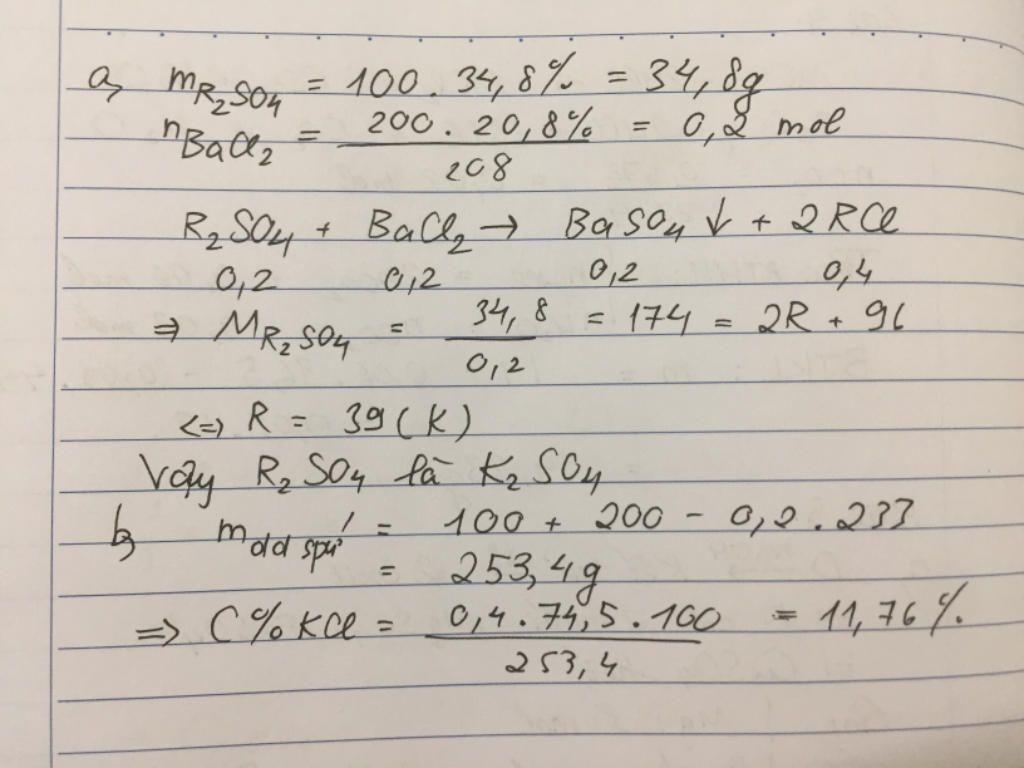 a, mR2SO4 = 100 . 34,8% = 34,8g
nBaCl2 = 200 . 20,8% / 208 = 0,2 mol
R2SO4 + BaCl2 → BaSO4 ↓ + 2RCl
0,2 0,2 0,2 0,4
⇒ MR2SO4 = 34,8 / 0,2 = 174 = 2R + 96
<=> R = 39 (K)
Vậy R2SO4 là K2SO4
b, mdd spú = 100 + 200 - 0,2 . 233
= 253,4g
=> C% KCl = 0,4 . 74,5 . 100 / 253,4 = 11,76%.